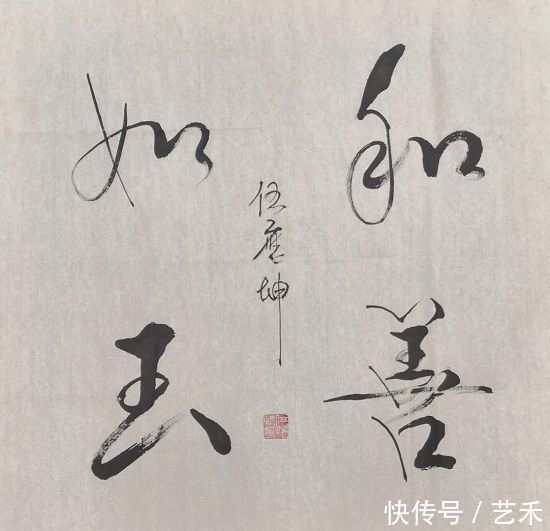 和善
如玉
伍唐坤
快传号 / 艺禾